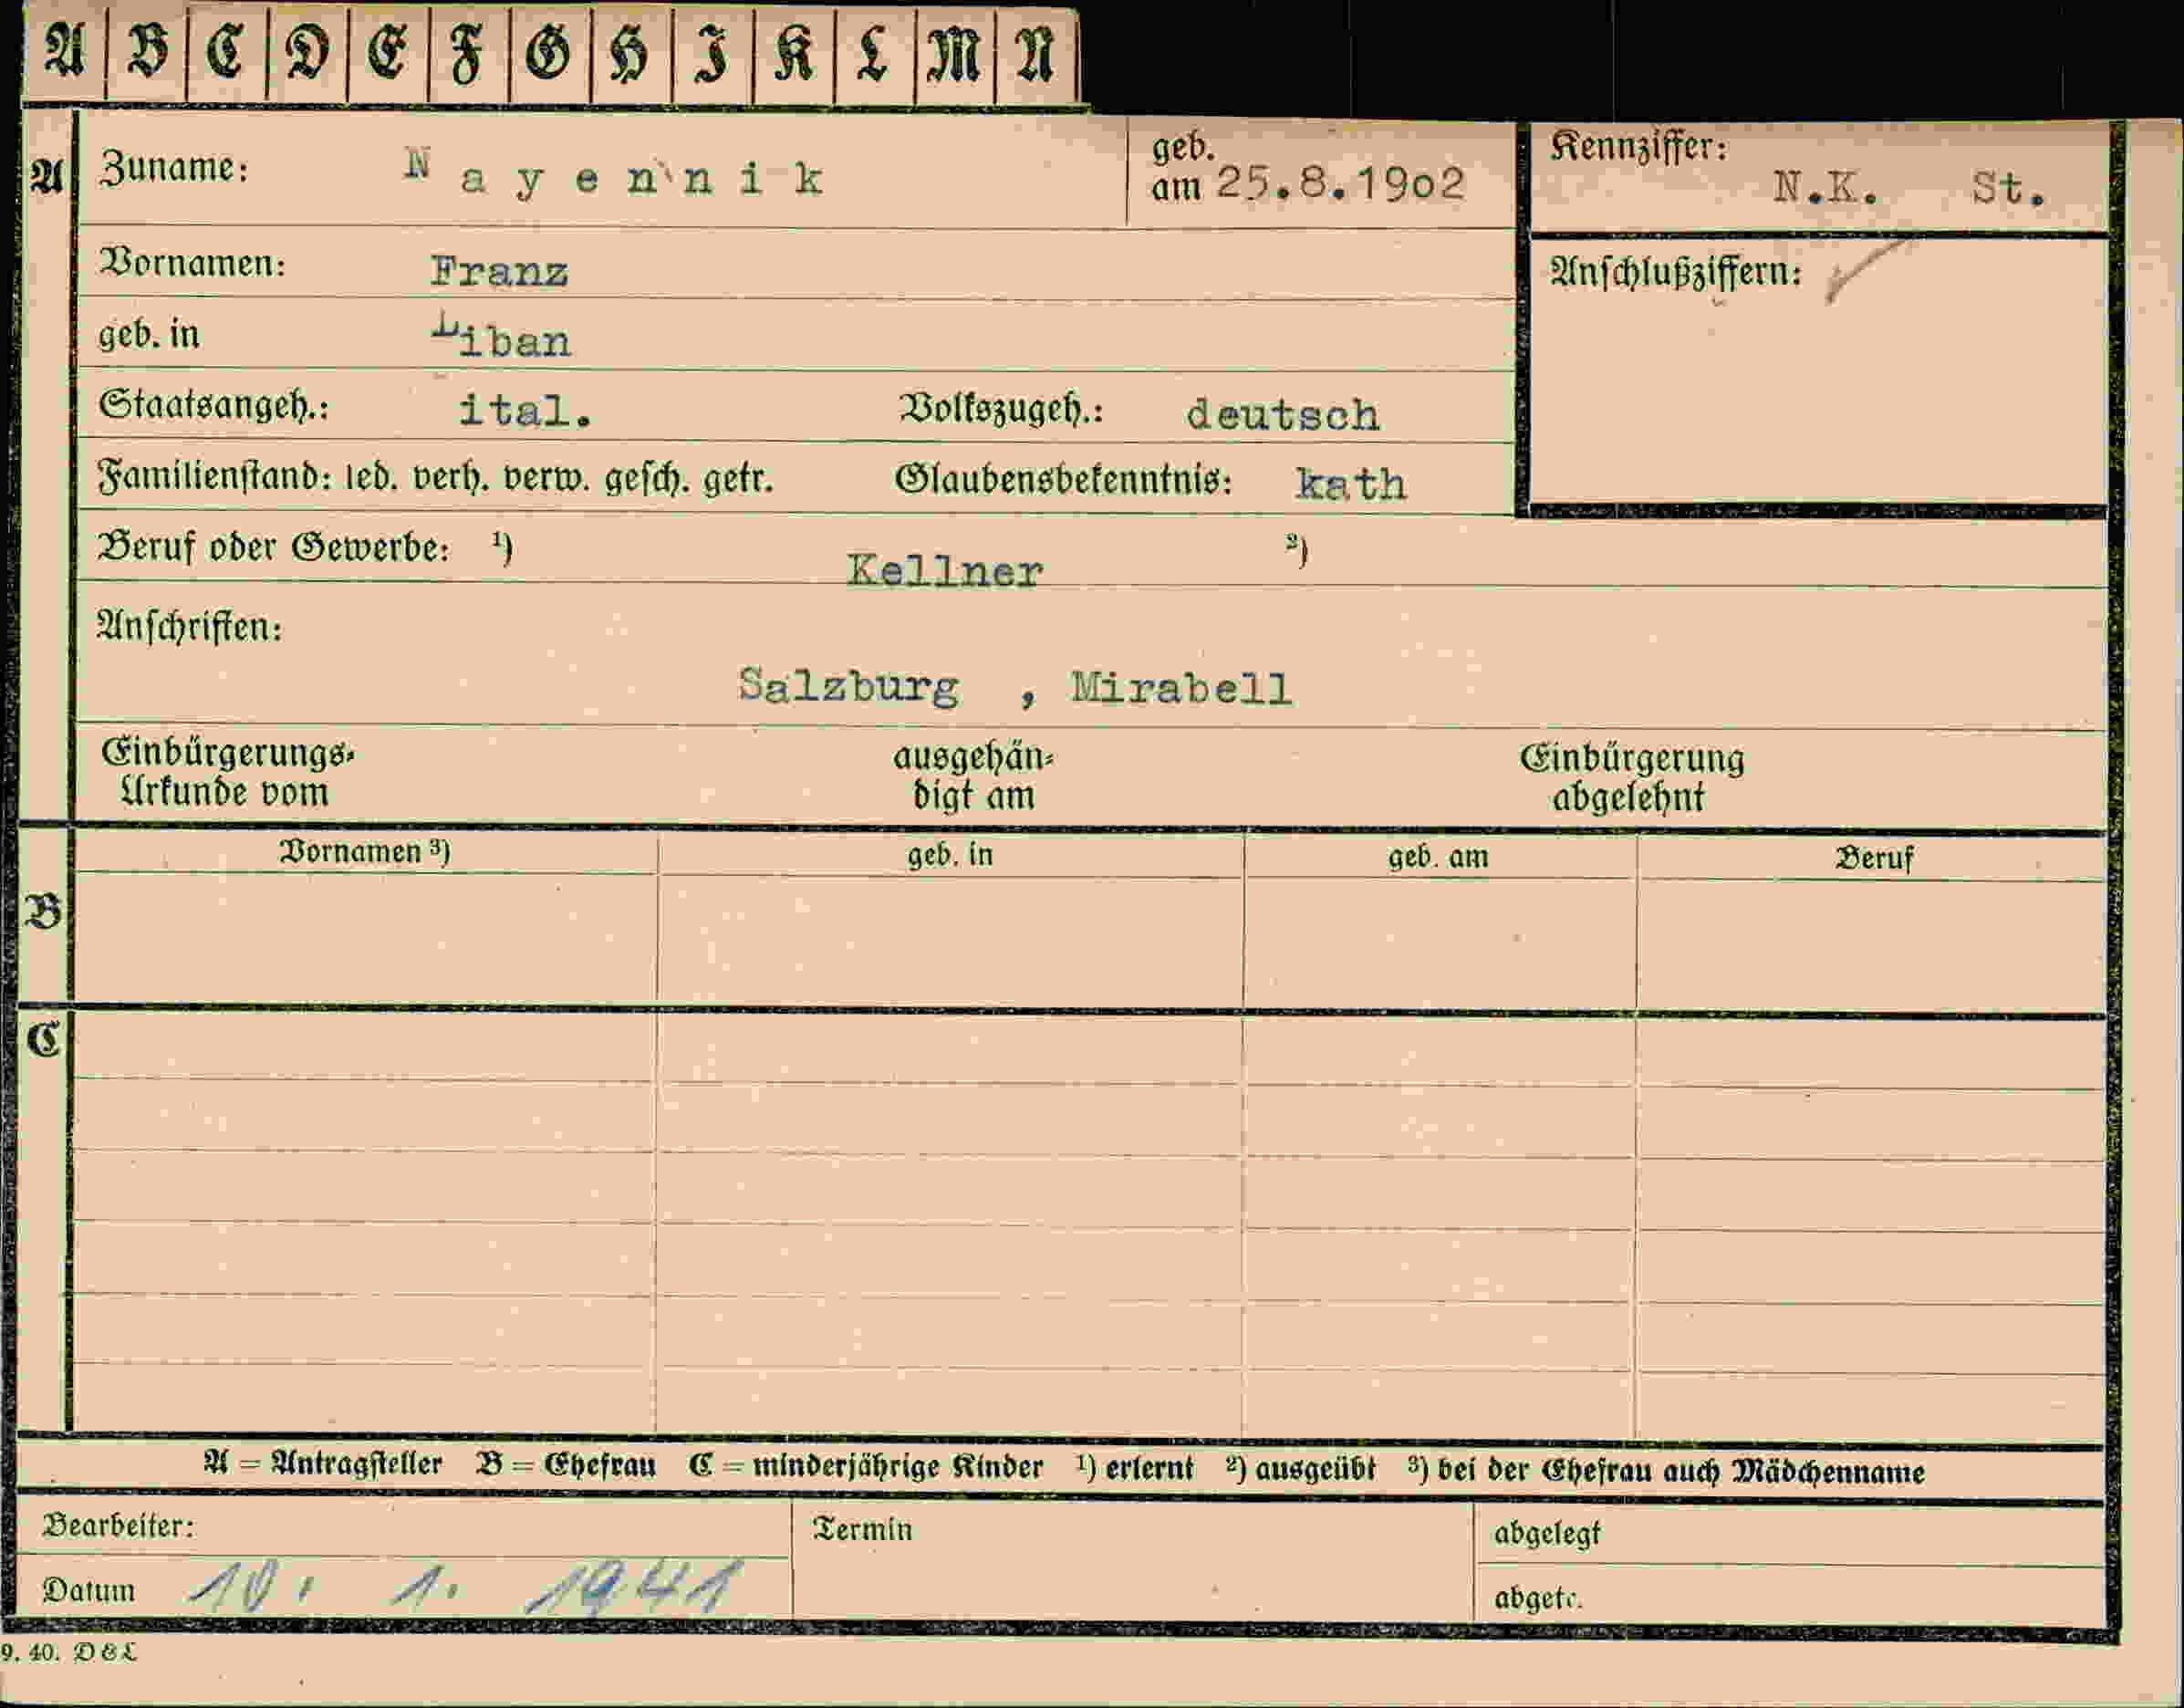 A B C D E F G H I K L M N
A Zuname: Nayennik geb. am 25.8.19o2
Kennziffer: N.K. St.
Vornamen: Franz
Anschlußziffern:
geb. in Liban
Staatsangeh.: ital. Volkszugeh.: deutsch
Familienstand: led. verh. verw. gesch. getr. Glaubensbekenntnis: kath
Beruf oder Gewerbe: ¹) Kellner ²)
Anschriften:
Salzburg , Mirabell
Einbürgerungs- ausgehän- Einbürgerung
Urkunde vom digt am abgelehnt
Vornamen ³) geb. in geb. am Beruf
B
C
A = Antragsteller B = Ehefrau C = minderjährige Kinder ¹) erlernt ²) ausgeübt ³) bei der Ehefrau auch Mädchenname
Bearbeiter: Termin abgelegt
Datum 10. 1. 1941 abgetr.
9. 40. D&L